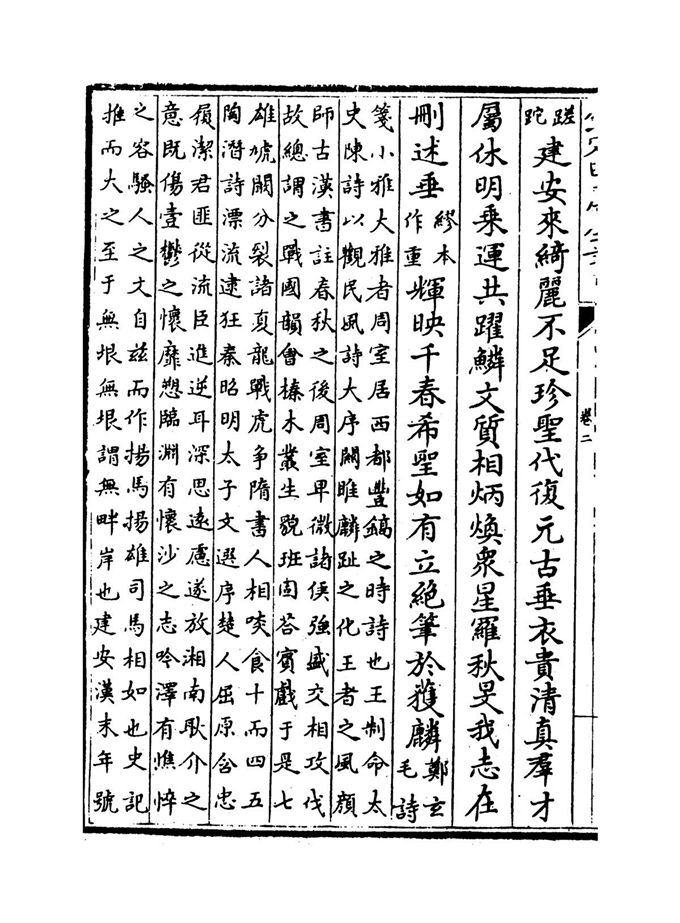 卷二
蹉跎建安來綺麗不足珍聖代復元古垂衣貴清真羣才
屬休明乘運共躍鱗文質相炳煥衆星羅秋旻我志在
刪述垂繆本作重輝映千春希聖如有立絶筆於獲麟鄭玄毛詩
箋小雅大雅者周室居西都豐鎬之時詩也王制命太
史陳詩以觀民風詩大序闗雎麟趾之化王者之風顔
師古漢書註春秋之後周室卑微諸侯強盛交相攻伐
故總謂之戰國韻會榛木叢生貌班固答賓戲于是七
雄虓闞分裂諸夏龍戰虎争隋書人相啖食十而四五
陶潛詩漂流逮狂秦昭明太子文選序楚人屈原含忠
履潔君匪從流臣進逆耳深思遠慮遂放湘南耿介之
意既傷壹鬱之懷靡愬臨淵有懷沙之志吟澤有憔悴
之容騷人之文自兹而作揚馬揚雄司馬相如也史記
推而大之至于無垠無垠謂無畔岸也建安漢末年號